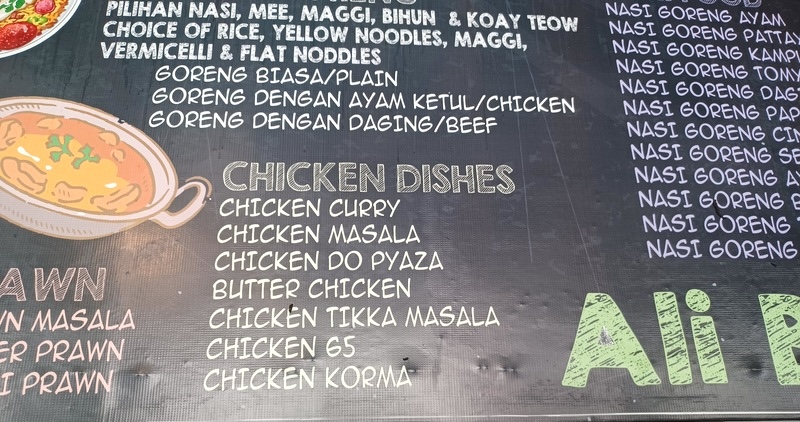 PILIHAN NASI, MEE, MAGGI, BIHUN & KOAY TEOW
CHOICE OF RICE, YELLOW NOODLES, MAGGI,
VERMICELLI & FLAT NODDLES
GORENG BIASA/PLAIN
GORENG DENGAN AYAM KETUL/CHICKEN
GORENG DENGAN DAGING/BEEF
CHICKEN DISHES
CHICKEN CURRY
CHICKEN MASALA
CHICKEN DO PYAZA
BUTTER CHICKEN
CHICKEN TIKKA MASALA
CHICKEN 65
CHICKEN KORMA
MASALA
PRAWN
PRAWN
NASI GORENG AYAM
NASI GORENG
NASI GORENG
NASI GORENG
NASI GORENG
NASI GORENG
NASI GORENG
NASI GORENG
NASI GORENG
NASI GORENG
NASI GORENG
NASI GORENG
Ali